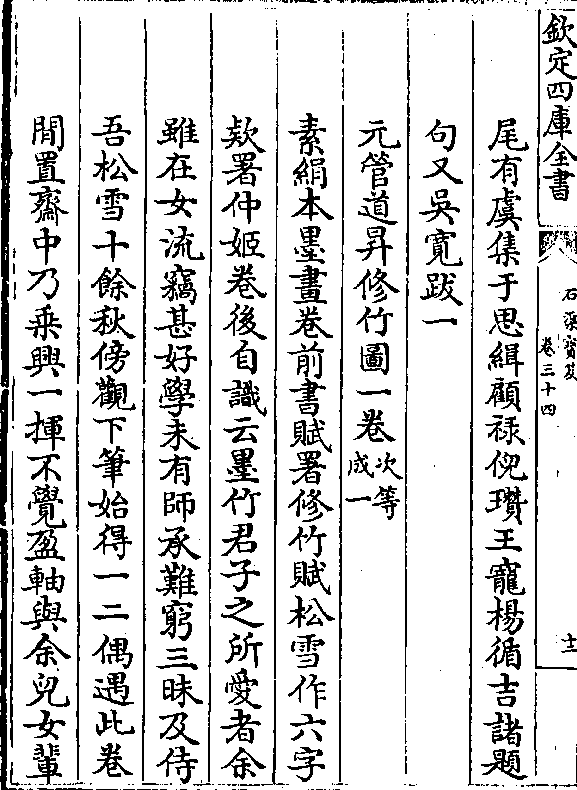 欽定四庫全書
石渠寳笈
卷三十四
十二
尾有虞集于思緝顧禄倪瓚王寵楊循吉諸題
句又吳寛跋一
元管道昇修竹圖一卷次等
成一
素絹本墨畫卷前書賦署修竹賦松雪作六字
欵署仲姬卷後自識云墨竹君子之所愛者余
雖在女流竊甚好學未有師承難窮三昧及侍
吾松雪十餘秋傍觀下筆始得一二偶遇此卷
閒置齋中乃乘興一揮不覺盈軸與余兒女輩